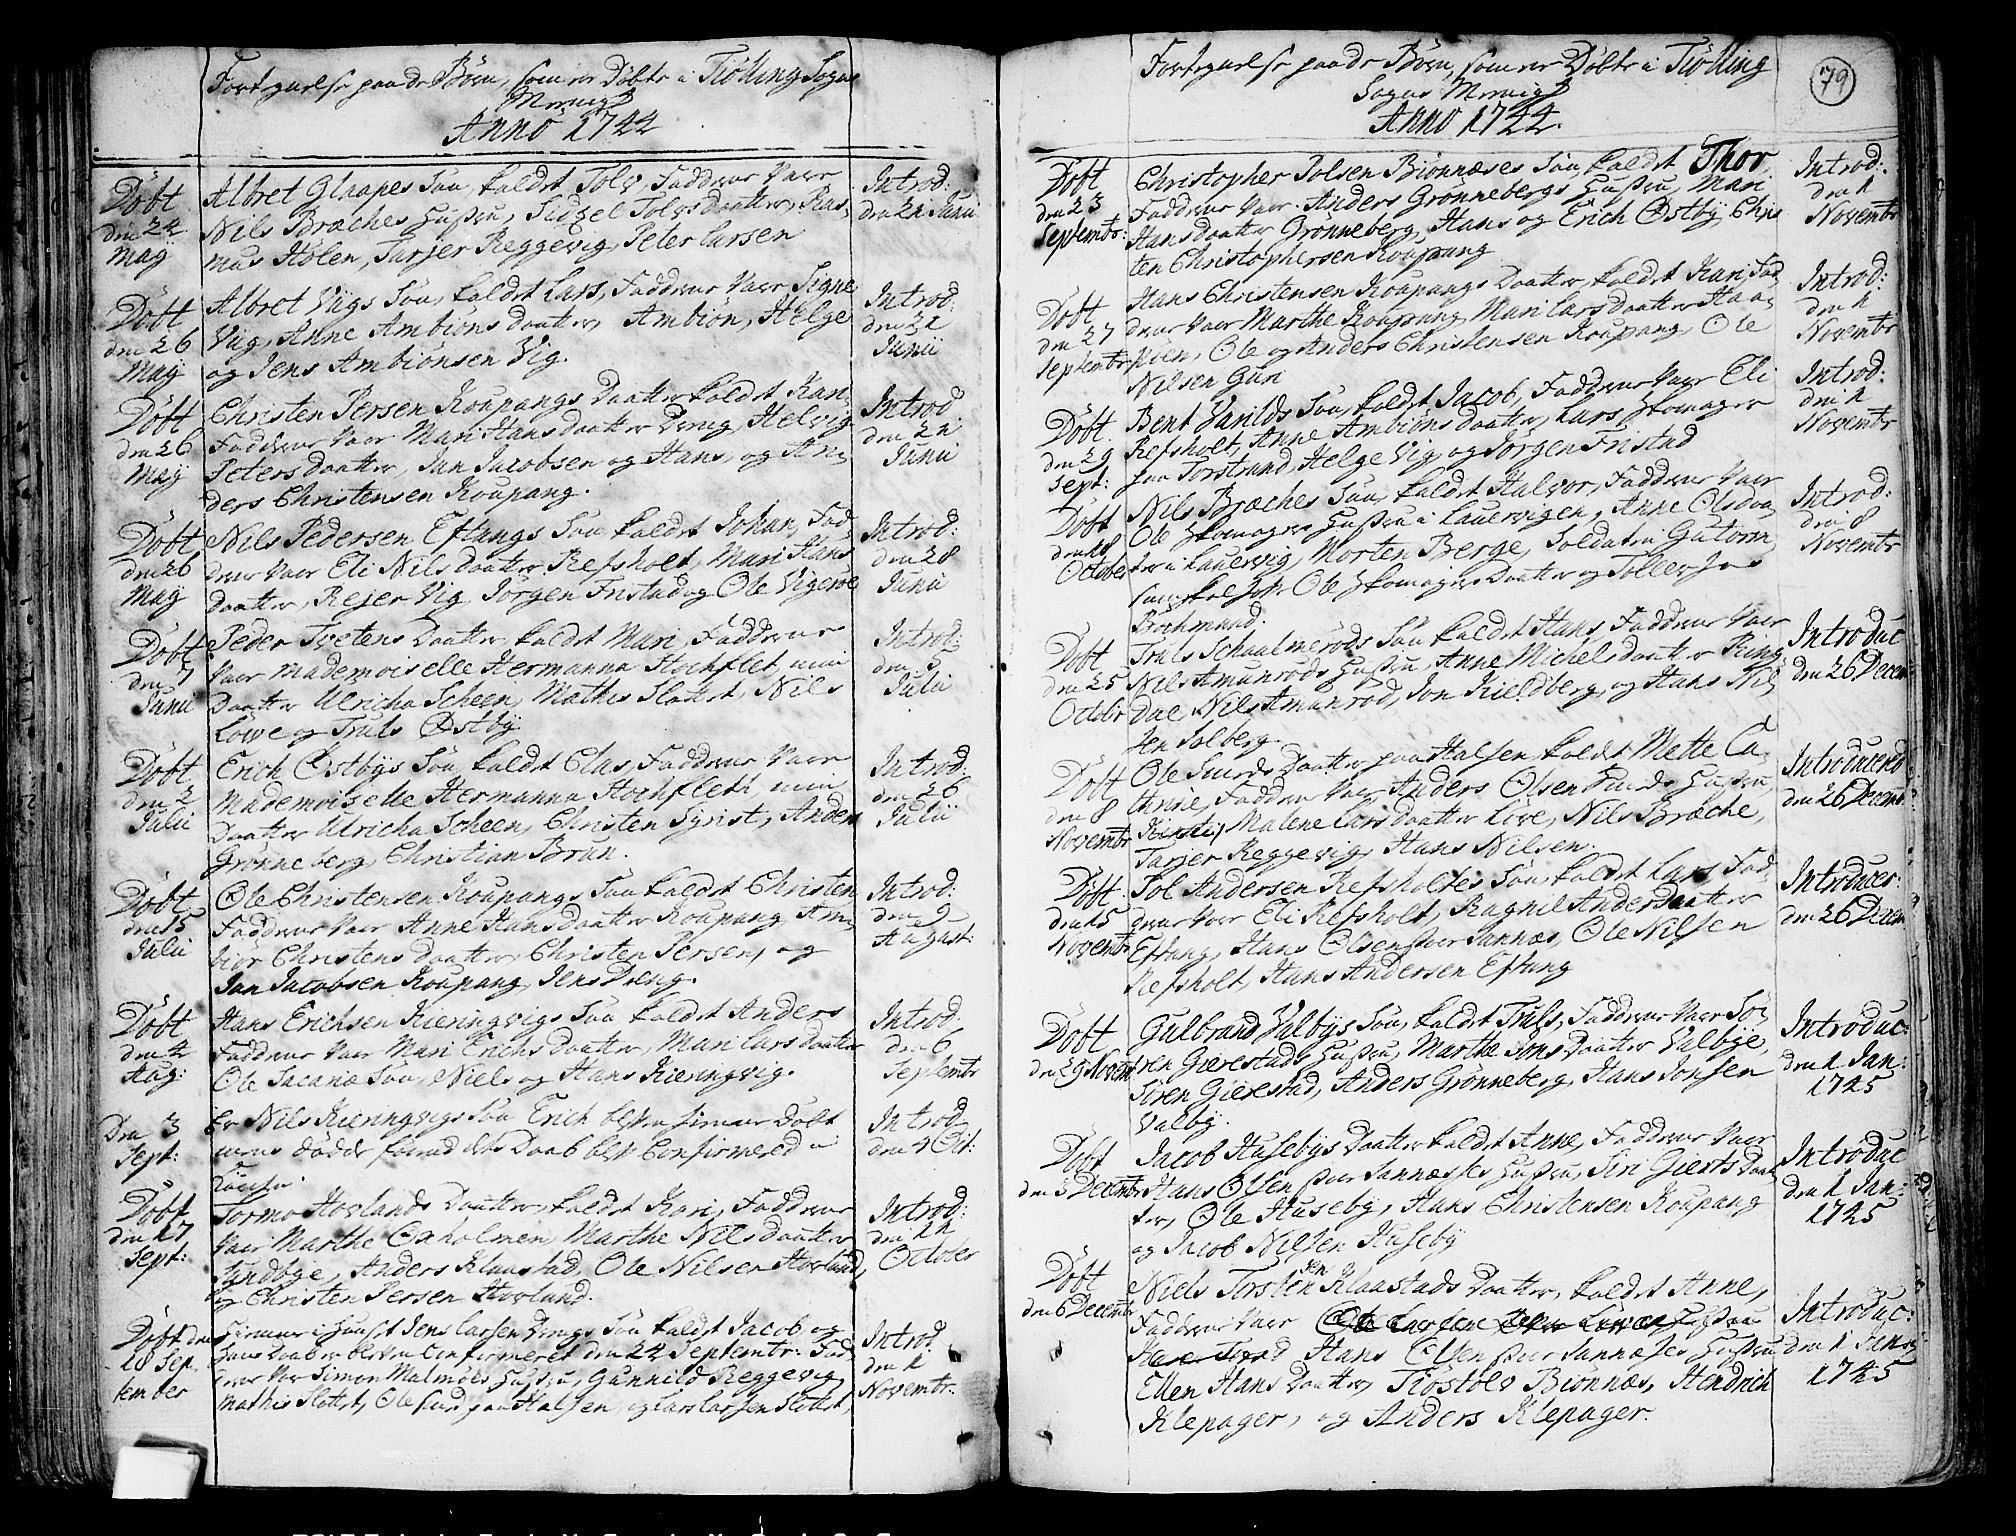 Fortegnelse paa de Börn, som ere Döbte i Tiölling Sogns
Menigh
Anno 1744
Döbt den 24 Maÿ
Albret Glaapes Sön, kaldet Tolv, Faddrene Vare
Nils Bræches Hustrue, Sidsel Tolvsdaatter, Ras-
mus Hølen, Tarjer Reggevig, Peter Larsen
Introd: den 21 Junii
Döbt den 26 Maÿ
Albret Vigs Sön, kaldet Lars, Faddrene Vare Signe
Vig, Anne Ambiönsdaatter, Ambiön, Helge
og Jens Ambiönsen Vig.
Introd: den 21 Junii
Döbt den 26 Maÿ
Christen Persen Koupangs Daatter kaldet Kari,
Faddrene Vare Mari Hansdaatter Vrng, Helvig
Petersdaatter, Jan Jacobsen og Hans, og An-
ders Christensen Koupang.
Introd den 21 Junii
Döbt den 26 Maÿ
Nils Pedersen Eftangs Sön kaldet Johan, Fad
drene Vare Eli Nilsdaatter Refsholt, Mari Hans
daatter, Rejer Vig, Jörgen Fristad og Ole Vigerøe
Introd: den 28 Junii
Döbt den 7 Junii
Peder Tvetens Daatter kaldet Mari, Faddrene
Vare Mademoiselle Hermanna Hochflet, min
Daatter Ulricha Scheen, Mathis Slottet, Nils
Löwe og Truls Østbÿ
Introd: den 5 Julii
Döbt den 2 Julii
Erich Østbÿs Sön kaldet Clas, Faddrene Vare
Mademoiselle Hermanna Hochfleth, min
Daatter Ulricha Scheen, Christen Syrist, Anders
Grønneberg, Christian Brun.
Introd: den 26 Julii
Döbt den 15 Julii
Ole Christensen Koupangs Sön kaldet Christen
Faddrene Vare Anne Hansdaatter Koupang, Am-
biör Christensdaatter, Christen Persen, og
Jan Jacobsen Koupang, Jens Dreng.
Introd: den 9 August:
Döbt den 2 Aug:
Hans Erichsen Kieringvigs Sön kaldet Anders
Faddrene Vare Mari Erichsdaatter, Mari Larsdaatter
Ole Sacariæ Sön, Niels og Hans Kieringvig.
Introd. den 6 Septembr
Den 3 Sept:
Er Nils Kieringvigs Sön Erich blev hiemme Döbt
mens dödde förend dets Daab blev Confirmered i
Kirken.
Introd den 4 Oct:
Döbt den 27 Sept:
Tormo Hovlands Daatter, kaldet Kari, Faddrene
Vare Marthe Oxholmen, Marthe Nilsdaatter
Sundbye, Anders Klaastad, Ole Nilsen Hovland,
og Christen Persen Hovland.
Introd: den 11 October
Döbt den 18 September
Hiemme i Huuset Jens Larsen Vrngs Sön kaldet Jacob, og
hans Daab er bleven Confirmeret den 24 Septembr. Fad
drene Var Simon Malmöes Hustrue, Gunnild Reggevig,
Mathis Slottet, Ole Smed paa Halsen, og Lars Larsen Slottet,
Introd. den 1 Novembr.
79
Fortegnelse paa de Börn, som ere Döbte i Tiölling
Sogns Menigh
Anno 1744.
Döbt den 23 Septembr:
Christopher Tolsen Biönnæses Sön, kaldet Thor,
Faddrene Vare. Anders Grønnebergs Hustrue, Mari
Hansdaatter Grønneberg, Hans og Erich Østbÿ, Chris
ten Christophersen Koupang
Introd: den 1 Novembr
Döbt den 27 Septembr
Hans Christensen Koupangs Daatter, kaldet Kari, Fad
drene Vare Marthe Koupang, Mari Larsdaatter Haa-
koen, Ole og Anders Christensen Koupang, Ole
Nilsen Guri
Introd: den 1 Novembr
Döbt. den 29 Sept:
Bent Vanilds Sön, kaldet Jacob, Faddrene Vare Eli
Refsholt, Anne Ambiönsdaatter, Lars Skomager
paa Torstrand, Helge Vig, og Jörgen Fristad
Introd: den 1 Novembr
Döbt den 18 October
Nils Bræches Sön, kaldet Halvor, Faddrene Vare
Ole Skomagers Hustrue i Lauervigen, Anne Olsdaa-
tter i Lauervig, Morten Berge, Soldaten Gutorm
Ole Skomagers Daatter og Tollev Jon
Bochmand.
Introd: den 8 Novembr
Döbt den 25 Octobr
Truls Schaalmeröds Sön kaldet Hans, Faddrene Vare
Nils Amunröds Hustrue, Anne Michelsdaatter Ring-
dal, Nils Amunröd, Jon Kieldberg, og Hans Nil-
sen Solberg.
Introduc den 26 Decem
Döbt den 8 Novembr
Ole Smeds Daatter paa Halsen kaldt Mette Ca-
thrine, Faddrene Vare Anders Olsen Hustrue,
Kirsti, Malene Larsdaatter Löve, Nils Bræche,
Tarjer Reggevig, Hans Nilsen.
Introducered den 26 Decembr
Döbt. den 15 Novembr
Tol Andersen Refsholtes Sön, kaldet Lars, Fad-
drene Vare Eli Refsholt, Ragnil Andersdaatter
Eftang, Hans Olsen Sannæs, Ole Nilsen
Refsholt, Hans Andersen Eftang
Introducer: den 26 Decem
Döbt den 29 Novem
Gulbrand Valbÿs Sön, kaldet Truls, Faddrene Vare Sö-
ren Gierestads Hustrue, Marthe Jonsdaatter Valbÿe,
Sören Gierestad, Anders Grönneberg, Hans Jonsen
Valbÿ.
Introduc: den 1 Jan: 1745
Döbt den 3 Decembr
Jacob Husebÿs Daatter kaldet Anne, Faddrene Vare
Hans Olsen Sannæses Hustrue, Siri Giertsdaat
ter, Ole Husebÿ, Hans Christensen Koupang
og Jacob Nilsen Husebÿ
Introduc den 1 Jan: 1745
Döbt den 6 Decembr
Niels Torstensen Klaastads Daatter, kaldet Anne,
Faddrene Vare
Hans Olsen Sannæses Hustrue
Ellen Hansdaatter, Tiostolv Bionnæs, Hendrich
Klepager, og Anders Klepager.
Introduc: den 1 Januarij 1745